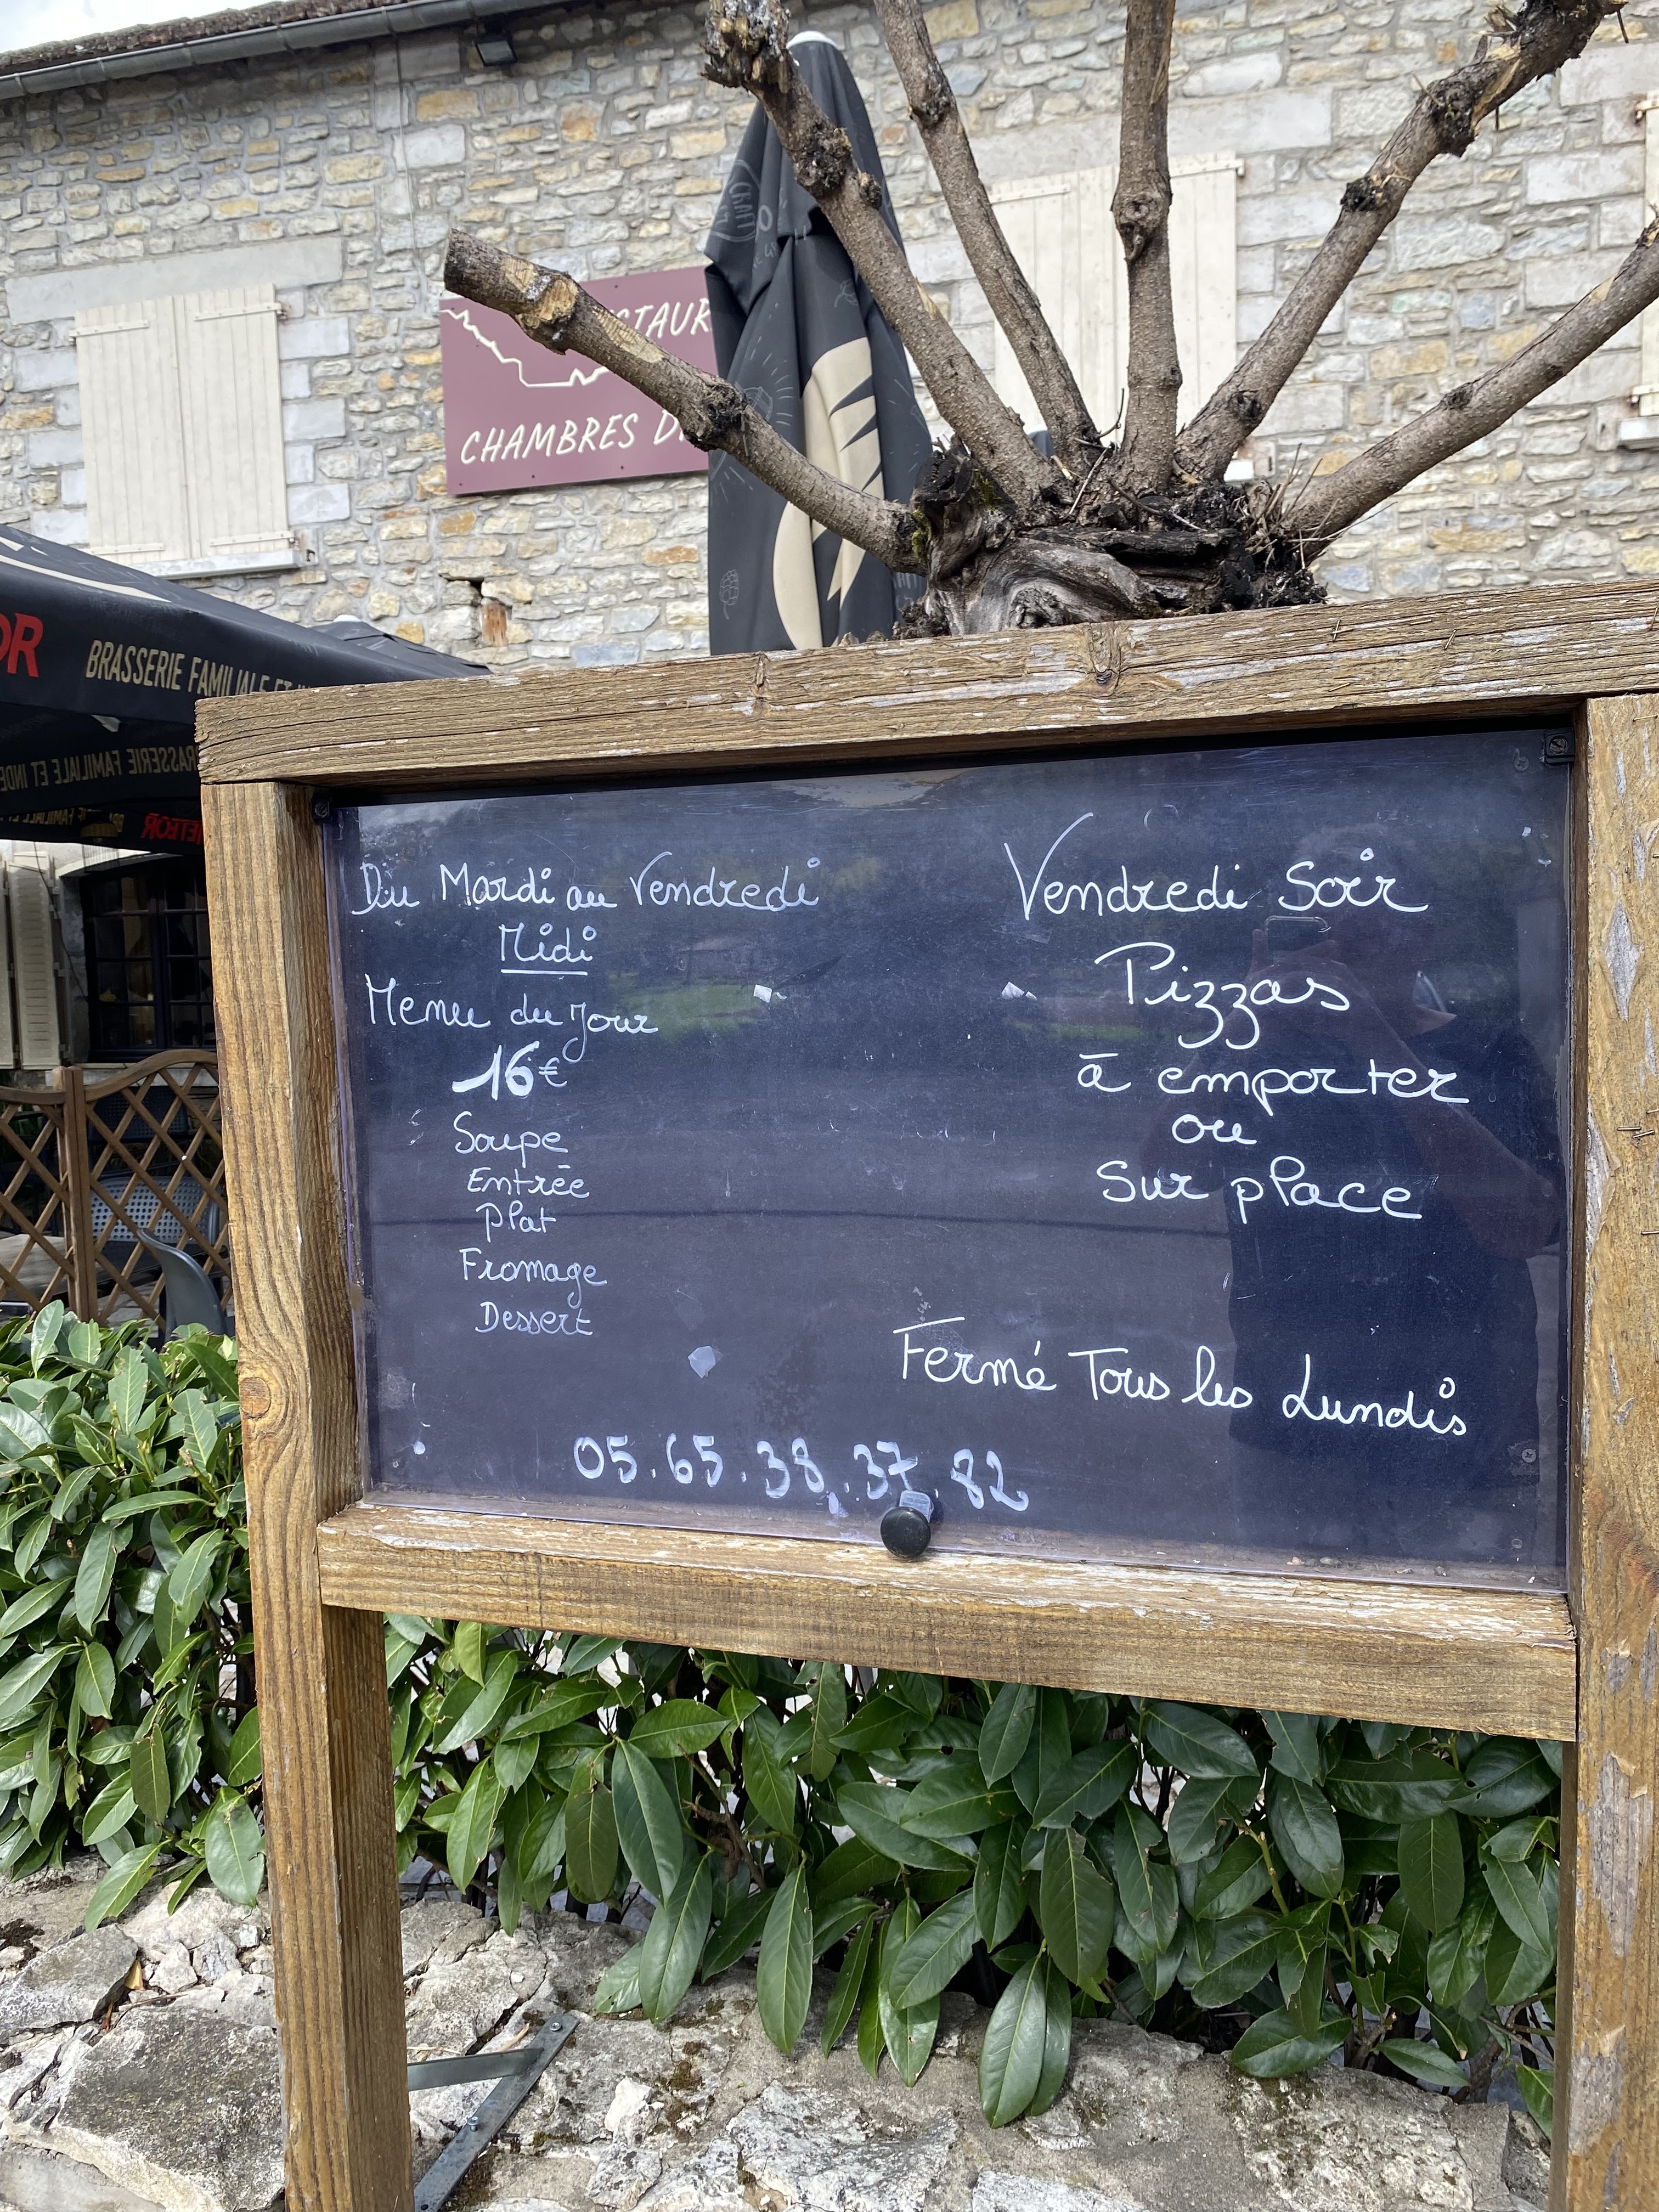 STAUR
CHAMBRES D
OR
BRASSERIE FAMILIALE ET
BRASSERIE FAMILIALE ET INDE
METEOR
Du Mardi au Vendredi
Midi
Menu du Jour
16€
Soupe
Entrée
Plat
Fromage
Dessert
Vendredi Soir
Pizzas
à emporter
ou
Sur place
Fermé Tous les Lundis
05.65.38.37.82